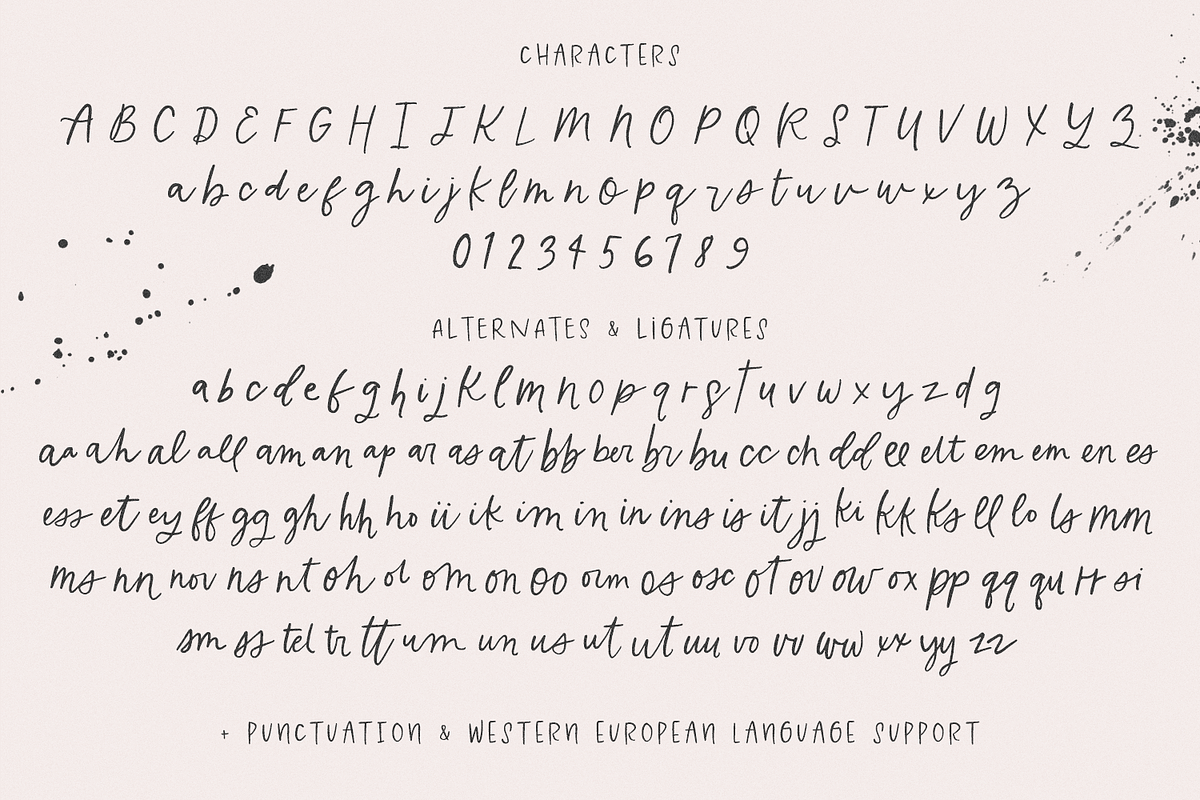 CHARACTERS
A B C D E F G H I J K L M N O P Q R S T U V W X Y Z
a b c d e f g h i j k l m n o p q r s t u v w x y z
0 1 2 3 4 5 6 7 8 9
ALTERNATES & LIGATURES
a b c d e f g h i j k l m n o p q r s t u v w x y z d g
aa ah al all am an ap ar as at bb ber br bu cc ch dd ee ett em em en es
ess et ey ff gg gh hh ho ii ik im in in ins is it jj ki kk ks ll lo ls mm
ms nn nov ns nt oh ol om on oo orm os osc ot ov ow ox pp qq qu rr si
sm ss tel tr tt um un us ut ut uu vo vv ww xx yy zz
+ PUNCTUATION & WESTERN EUROPEAN LANGUAGE SUPPORT